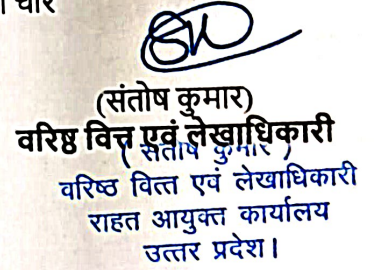 चार
(संतोष कुमार)
वरिष्ठ वित्त एवं लेखाधिकारी
( संतोष कुमार )
वरिष्ठ वित्त एवं लेखाधिकारी
राहत आयुक्त कार्यालय
उत्तर प्रदेश।